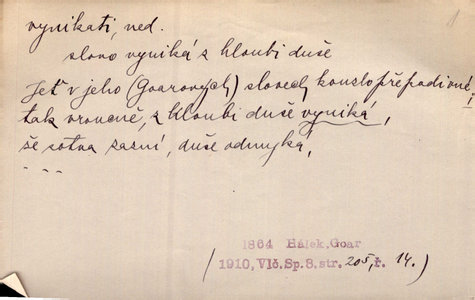 vynikati, ned.
slovo vyniká z hloubi duše
Jeť v jeho (Goarových) slovech kouzlo přepodivné,
tak vroucně, z hloubi duše vyniká,
že sotva zazní, duše odmyká,
- - -
1864 Hálek, Goar
(1910, Vlč. Sp. 8. str. 205, ř. 14.)